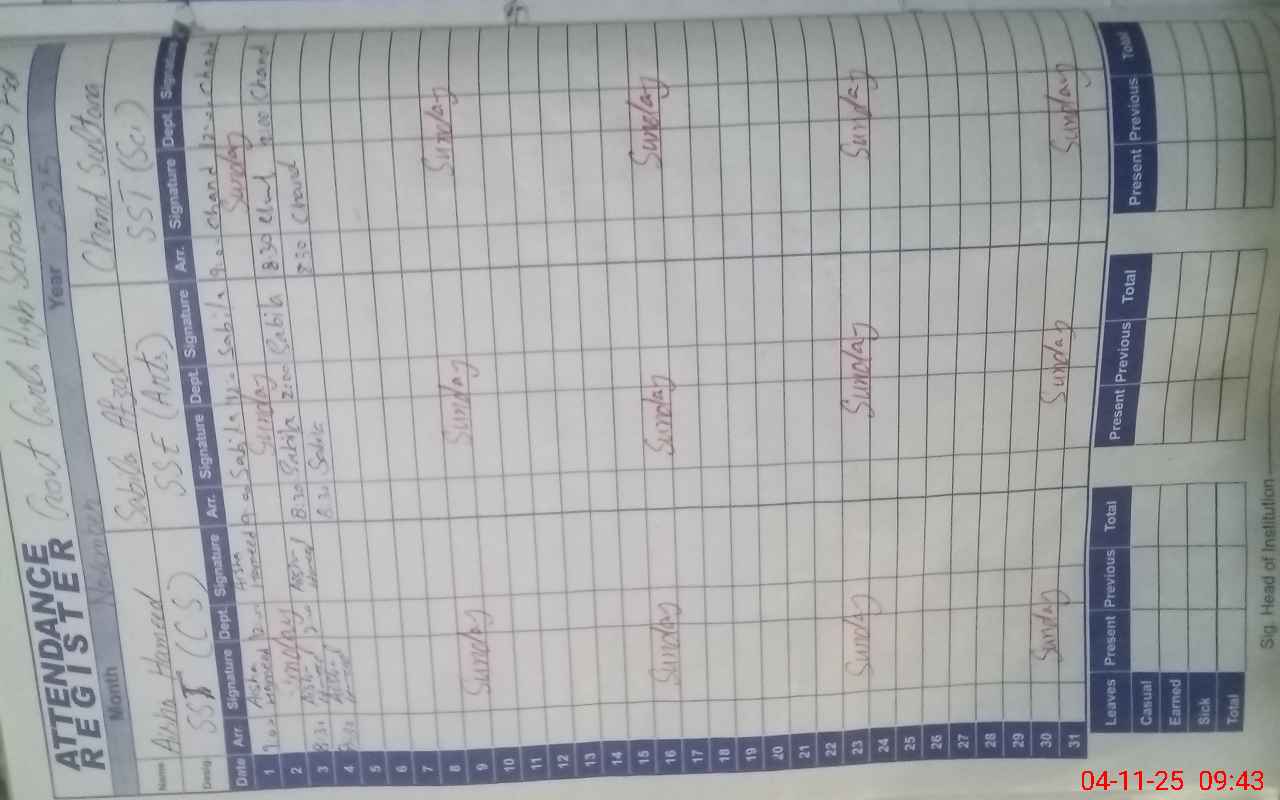 ATTENDANCE REGISTER
Govt Girls High School
Month November Year 2025
Name Aisha Hameed Sabila Afzal Chand Sultana
Desig. SST (CS) SSE (Arts) SST (Sci)
Date Arr. Signature Dept. Signature Arr. Signature Dept. Signature Arr. Signature Dept. Signature
1 9.00 Aisha Hameed Aisha Hameed Sabila Sabila Chand Chand
2 Sunday Sunday Sunday
3 8:30 8:30 Sabila 2:00 Sabila 8:30 Chand
4 8:30 Sabila 8:30 Chand
5
6
7
8
9 Sunday Sunday Sunday
10
11
12
13
14
15
16 Sunday Sunday Sunday
17
18
19
20
21
22
23 Sunday Sunday Sunday
24
25
26
27
28
29
30 Sunday Sunday Sunday
31
Leaves Present Previous Total Present Previous Total Present Previous Total
Casual
Earned
Sick
Total
Sig. Head of Institution
04-11-25 09:43